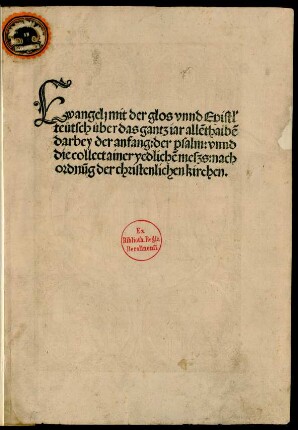 Ewangelj mit der glos vnnd Epistl'
teütsch über das gantz iar allēthaibē
darbey der anfang: der psalm: vnnd
die collect ainer yedlichē mesz: nach
ordnūg der christenlichen kirchen.
Ex
Biblioth. Regia
Berolinensi.